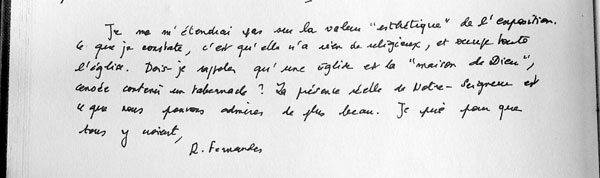 Je ne m'étendrai pas sur la valeur "esthétique" de l'exposition.
Ce que je constate, c'est qu'elle n'a rien de religieux, et occupe toute
l'église. Dois-je rappeler qu'une église est la "maison de Dieu",
censée contenir un tabernacle ? La présence réelle de Notre-Seigneur est
ce que nous pouvons admirer de plus beau. Je prie pour que
tous y voient,
R. Fernandes